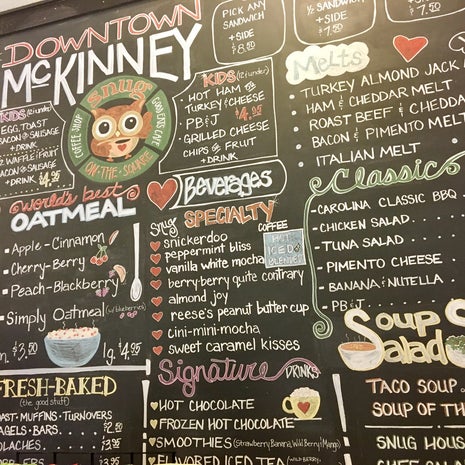 DOWNTOWN
McKINNEY
Snug
COFFEE SHOP
ON·THE·SQUARE
KIDS (12 & under)
EGG, TOAST
BACON or SAUSAGE
+ DRINK
WAFFLE FRUIT
BACON or SAUSAGE
+ DRINK $4.95
KIDS (12 & under)
HOT HAM or
TURKEY & CHEESE
PB & J
GRILLED CHEESE
CHIPS or FRUIT
+ DRINK
$4.95
PICK ANY
SANDWICH
+ SIDE
$8.50
½ SANDWICH
+ SIDE
$7.50
SANDWICH
+ SIDE
$7.50
Melts
• TURKEY ALMOND JACK
• HAM & CHEDDAR MELT
• ROAST BEEF & CHEDDA
• BACON & PIMENTO MELT
• ITALIAN MELT
Classic
- CAROLINA CLASSIC BBQ
- CHICKEN SALAD
- TUNA SALAD
- PIMENTO CHEESE
- BANANA & NUTELLA
- PB & J
world's best
OATMEAL
• Apple-Cinnamon
• Cherry-Berry
• Peach-Blackberry
• Simply Oatmeal (w/blueberries)
$3.50 lg. $4.95
Beverages
Snug SPECIALTY
COFFEE
HOT
ICED
BLENDED
snickerdoo
peppermint bliss
vanilla white mocha
berry·berry quite contrary
almond joy
reese's peanut butter cup
cini-mini-mocha
sweet caramel kisses
Signature DRINKS
HOT CHOCOLATE
FROZEN HOT CHOCOLATE
SMOOTHIES (Strawberry Banana, Wild Berry, Mango)
FLAVORED ICED TEA (WILD BERRY
FRESH-BAKED
(the good stuff)
AST·MUFFINS·TURNOVERS
AGELS·BARS
$2.95
OLACHES
Soup
Salad
TACO SOUP
SOUP OF TH
SNUG HOUSE